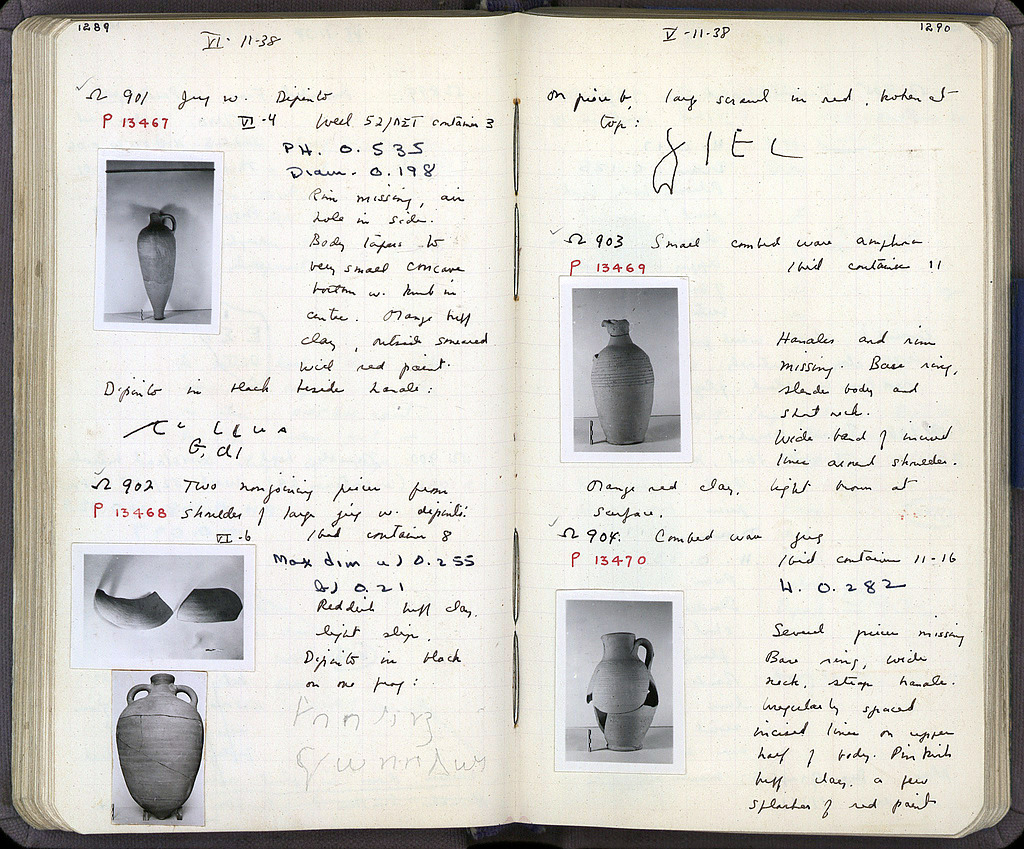 1289
VI - 11-38
Ω 901 Jug w. Dipinto
P 13467 VI-4 Well 52/ΛΣΤ container 3
PH. 0.535
Diam. 0.198
Rim missing, air
hole in side.
Body tapers to
very small concave
bottom w. knob in
centre. Orange buff
clay, outside smeared
with red paint.
Dipinto in black beside handle:
Ω 902 Two nonjoining pieces from
P 13468 shoulder of large jug w. dipinti:
VI-6 Ibid container 8
Max dim a) 0.255
b) 0.21
Reddish buff clay,
light slip.
Dipinto in black
on one frag:
1290
V - 11-38
on piece b, large scrawl in red, broken at
top:
Ω 903 Small combed ware amphora
P 13469 Ibid container 11
Handles and rim
missing. Base ring,
slender body and
short neck.
Wide band of incised
lines around shoulder.
Orange red clay, light brown at
surface.
Ω 904. Combed ware jug
P 13470 Ibid container 11-16
H. 0.282
Several pieces missing
Base ring, wide
neck, strap handle.
Irregularly spaced
incised lines on upper
half of body. Pinkish
buff clay. a few
splashes of red paint